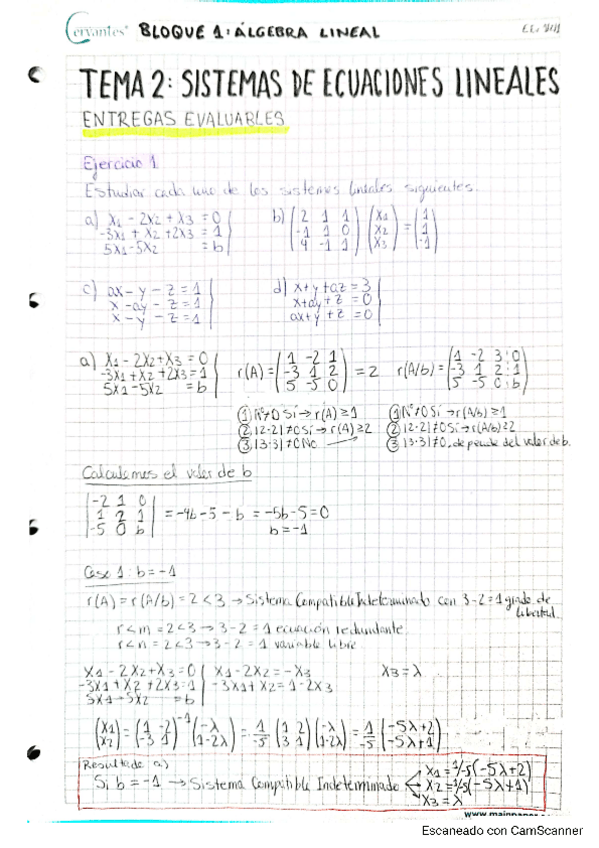 Cervantes BLOQUE 1: ÁLGEBRA LINEAL
TEMA 2: SISTEMAS DE ECUACIONES LINEALES
ENTREGAS EVALUABLES
Ejercicio 1
Estudiar cada uno de los sistemas lineales siguientes.
a) x1 - 2x2 + x3 = 0
-3x1 + x2 + 2x3 = 1
5x1 - 5x2 = b
b) (2 1 1 / -1 1 0 / 4 -1 1) (x1 / x2 / x3) = (1 / 1 / -1)
c) ax - y - z = 1
x - ay - z = 1
x - y - z = 1
d) x + y + az = 3
x + ay + z = 0
ax + y + z = 0
a) x1 - 2x2 + x3 = 0
-3x1 + x2 + 2x3 = 1
5x1 - 5x2 = b
r(A) = (1 -2 1 / -3 1 2 / 5 -5 0) = 2
r(A/b) = (1 -2 3 : 0 / -3 1 2 : 1 / 5 -5 0 : b)
① Nº≠0 Sí → r(A) ≥ 1
② |2·2| ≠ 0 Sí → r(A) ≥ 2
③ |3·3| ≠ 0 No
① Nº≠0 Sí → r(A/b) ≥ 1
② |2·2| ≠ 0 Sí → r(A/b) ≥ 2
③ |3·3| ≠ 0, depende del valor de b.
Calculamos el valor de b
|-2 1 0 / 1 2 1 / -5 0 b| = -4b - 5 - b = -5b - 5 = 0
b = -1
Caso 1: b = -1
r(A) = r(A/b) = 2 < 3 → Sistema Compatible Indeterminado con 3 - 2 = 1 grado de libertad.
r < m = 2 < 3 → 3 - 2 = 1 ecuación redundante.
r < n = 2 < 3 → 3 - 2 = 1 variable libre
x1 - 2x2 + x3 = 0 | x1 - 2x2 = -x3 x3 = λ
-3x1 + x2 + 2x3 = 1 | -3x1 + x2 = 1 - 2x3
5x1 - 5x2 = b
(x1 / x2) = (1 -2 / -3 1)^-1 (-λ / 1-2λ) = 1/-5 (1 2 / 3 1) (-λ / 1-2λ) = 1/-5 (-5λ+2 / -5λ+1)
Resultado a)
Si b = -1 → Sistema Compatible Indeterminado
x1 = 1/-5 (-5λ+2)
x2 = 1/-5 (-5λ+1)
x3 = λ
Escaneado con CamScanner